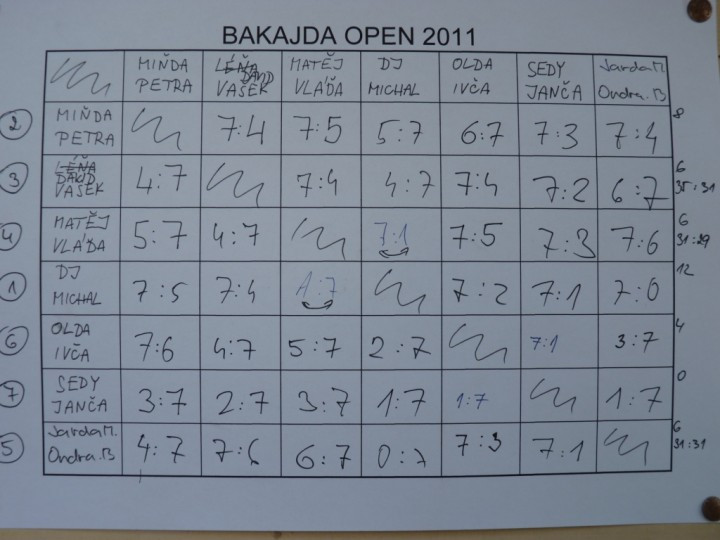 BAKAJDA OPEN 2011
MIŇDA PETRA LÉŇA DAVID VAŠEK MATĚJ VLÁĎA DJ MICHAL OLDA IVČA SEDY JANČA Jarda M. Ondra.B
2 MIŇDA PETRA 7:4 7:5 5:7 6:7 7:3 7:4 8
3 LÉŇA DAVID VAŠEK 4:7 7:4 4:7 7:4 7:2 6:7 6 35:31
4 MATĚJ VLÁĎA 5:7 4:7 7:1 7:5 7:3 7:6 6 31:29
1 DJ MICHAL 7:5 7:4 1:7 7:2 7:1 7:0 12
6 OLDA IVČA 7:6 4:7 5:7 2:7 7:1 3:7 4
7 SEDY JANČA 3:7 2:7 3:7 1:7 1:7 1:7 0
5 Jarda M. Ondra.B 4:7 7:6 6:7 0:7 7:3 7:1 6 31:31